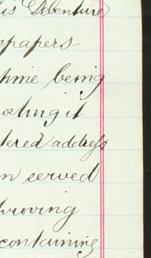 his Debenture
spapers
time being
osting it
tered address
n served
proving
containing